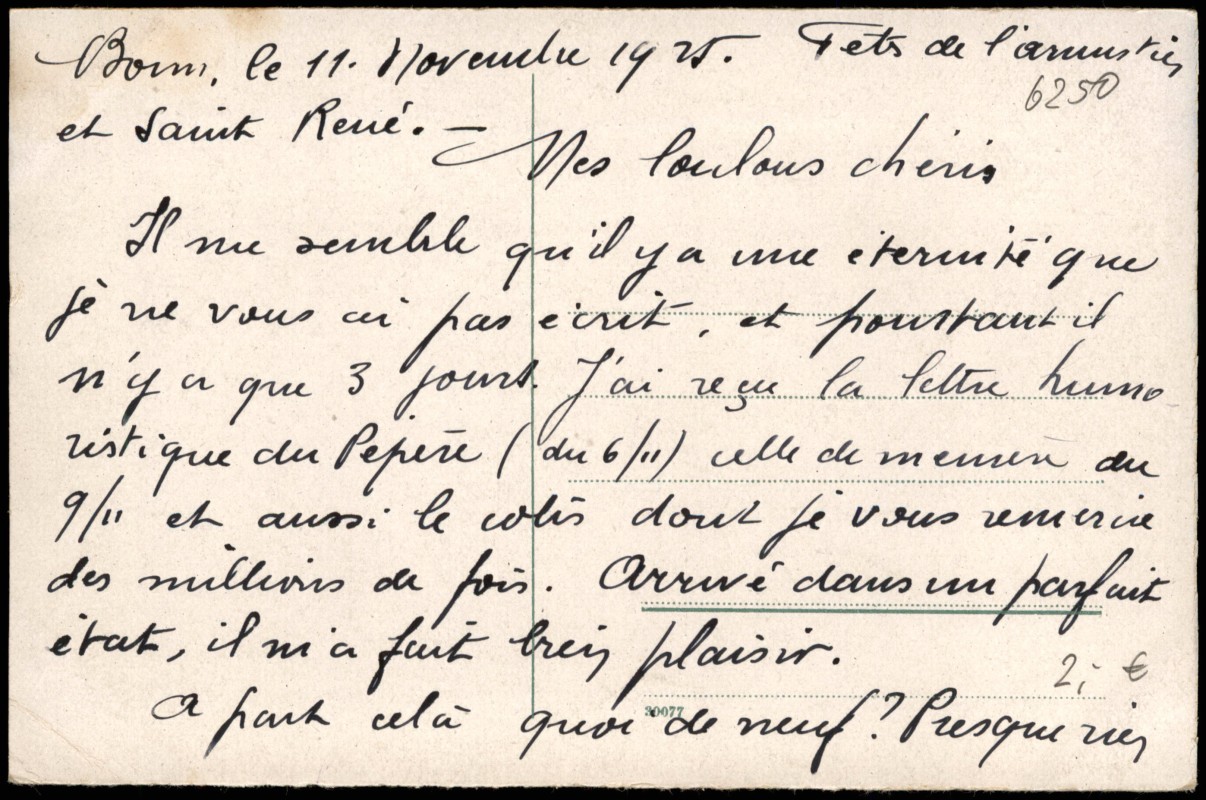 Bonn, le 11. Novembre 1925. Fête de l'armistice
6250
et Saint René. —
Mes loulous chéris
Il me semble qu'il y a une éternité que
je ne vous ai pas écrit, et pourtant il
n'y a que 3 jours. J'ai reçu la lettre humo
ristique du Pépère (du 6/11) celle de memère du
9/11 et aussi le colis dont je vous remercie
des millions de fois. Arrivé dans un parfait
état, il m'a fait bien plaisir.
2,- €
A part celà quoi de neuf? Presque rien
30077